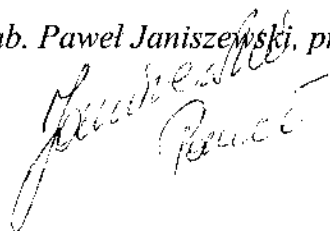 ab. Paweł Janiszewski, pr
Janiszewski
Paweł